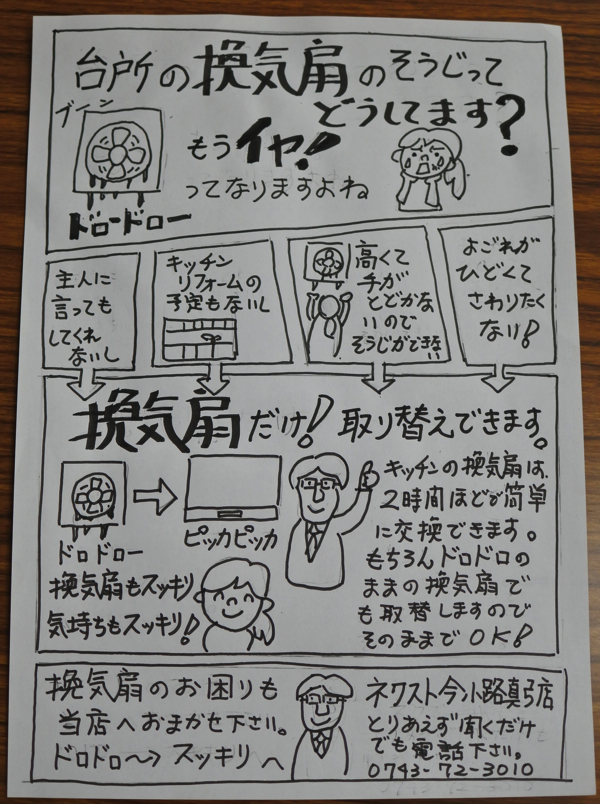 台所の換気扇のそうじって
どうしてます?
ブイーン
もうイヤ!
ってなりますよね
ドロードロー
主人に
言っても
してくれ
ないし
キッチン
リフォームの
予定もないし
高くて
手が
とどかな
いので
そうじができない
よごれが
ひどくて
さわりたく
ない!
換気扇だけ!取り替えできます。
ドロドロー
ピッカピッカ
換気扇もスッキリ
気持ちもスッキリ!
キッチンの換気扇は、
2時間ほどが簡単
に交換できます。
もちろんドロドロの
ままの換気扇で
も取替しますので
そのままでOK!
換気扇のお困りも
当店へおまかせ下さい。
ドロドロ〜→スッキリへ
ネクスト今小路真弓店
とりあえず聞くだけ
でも電話下さい。
0743-72-3010